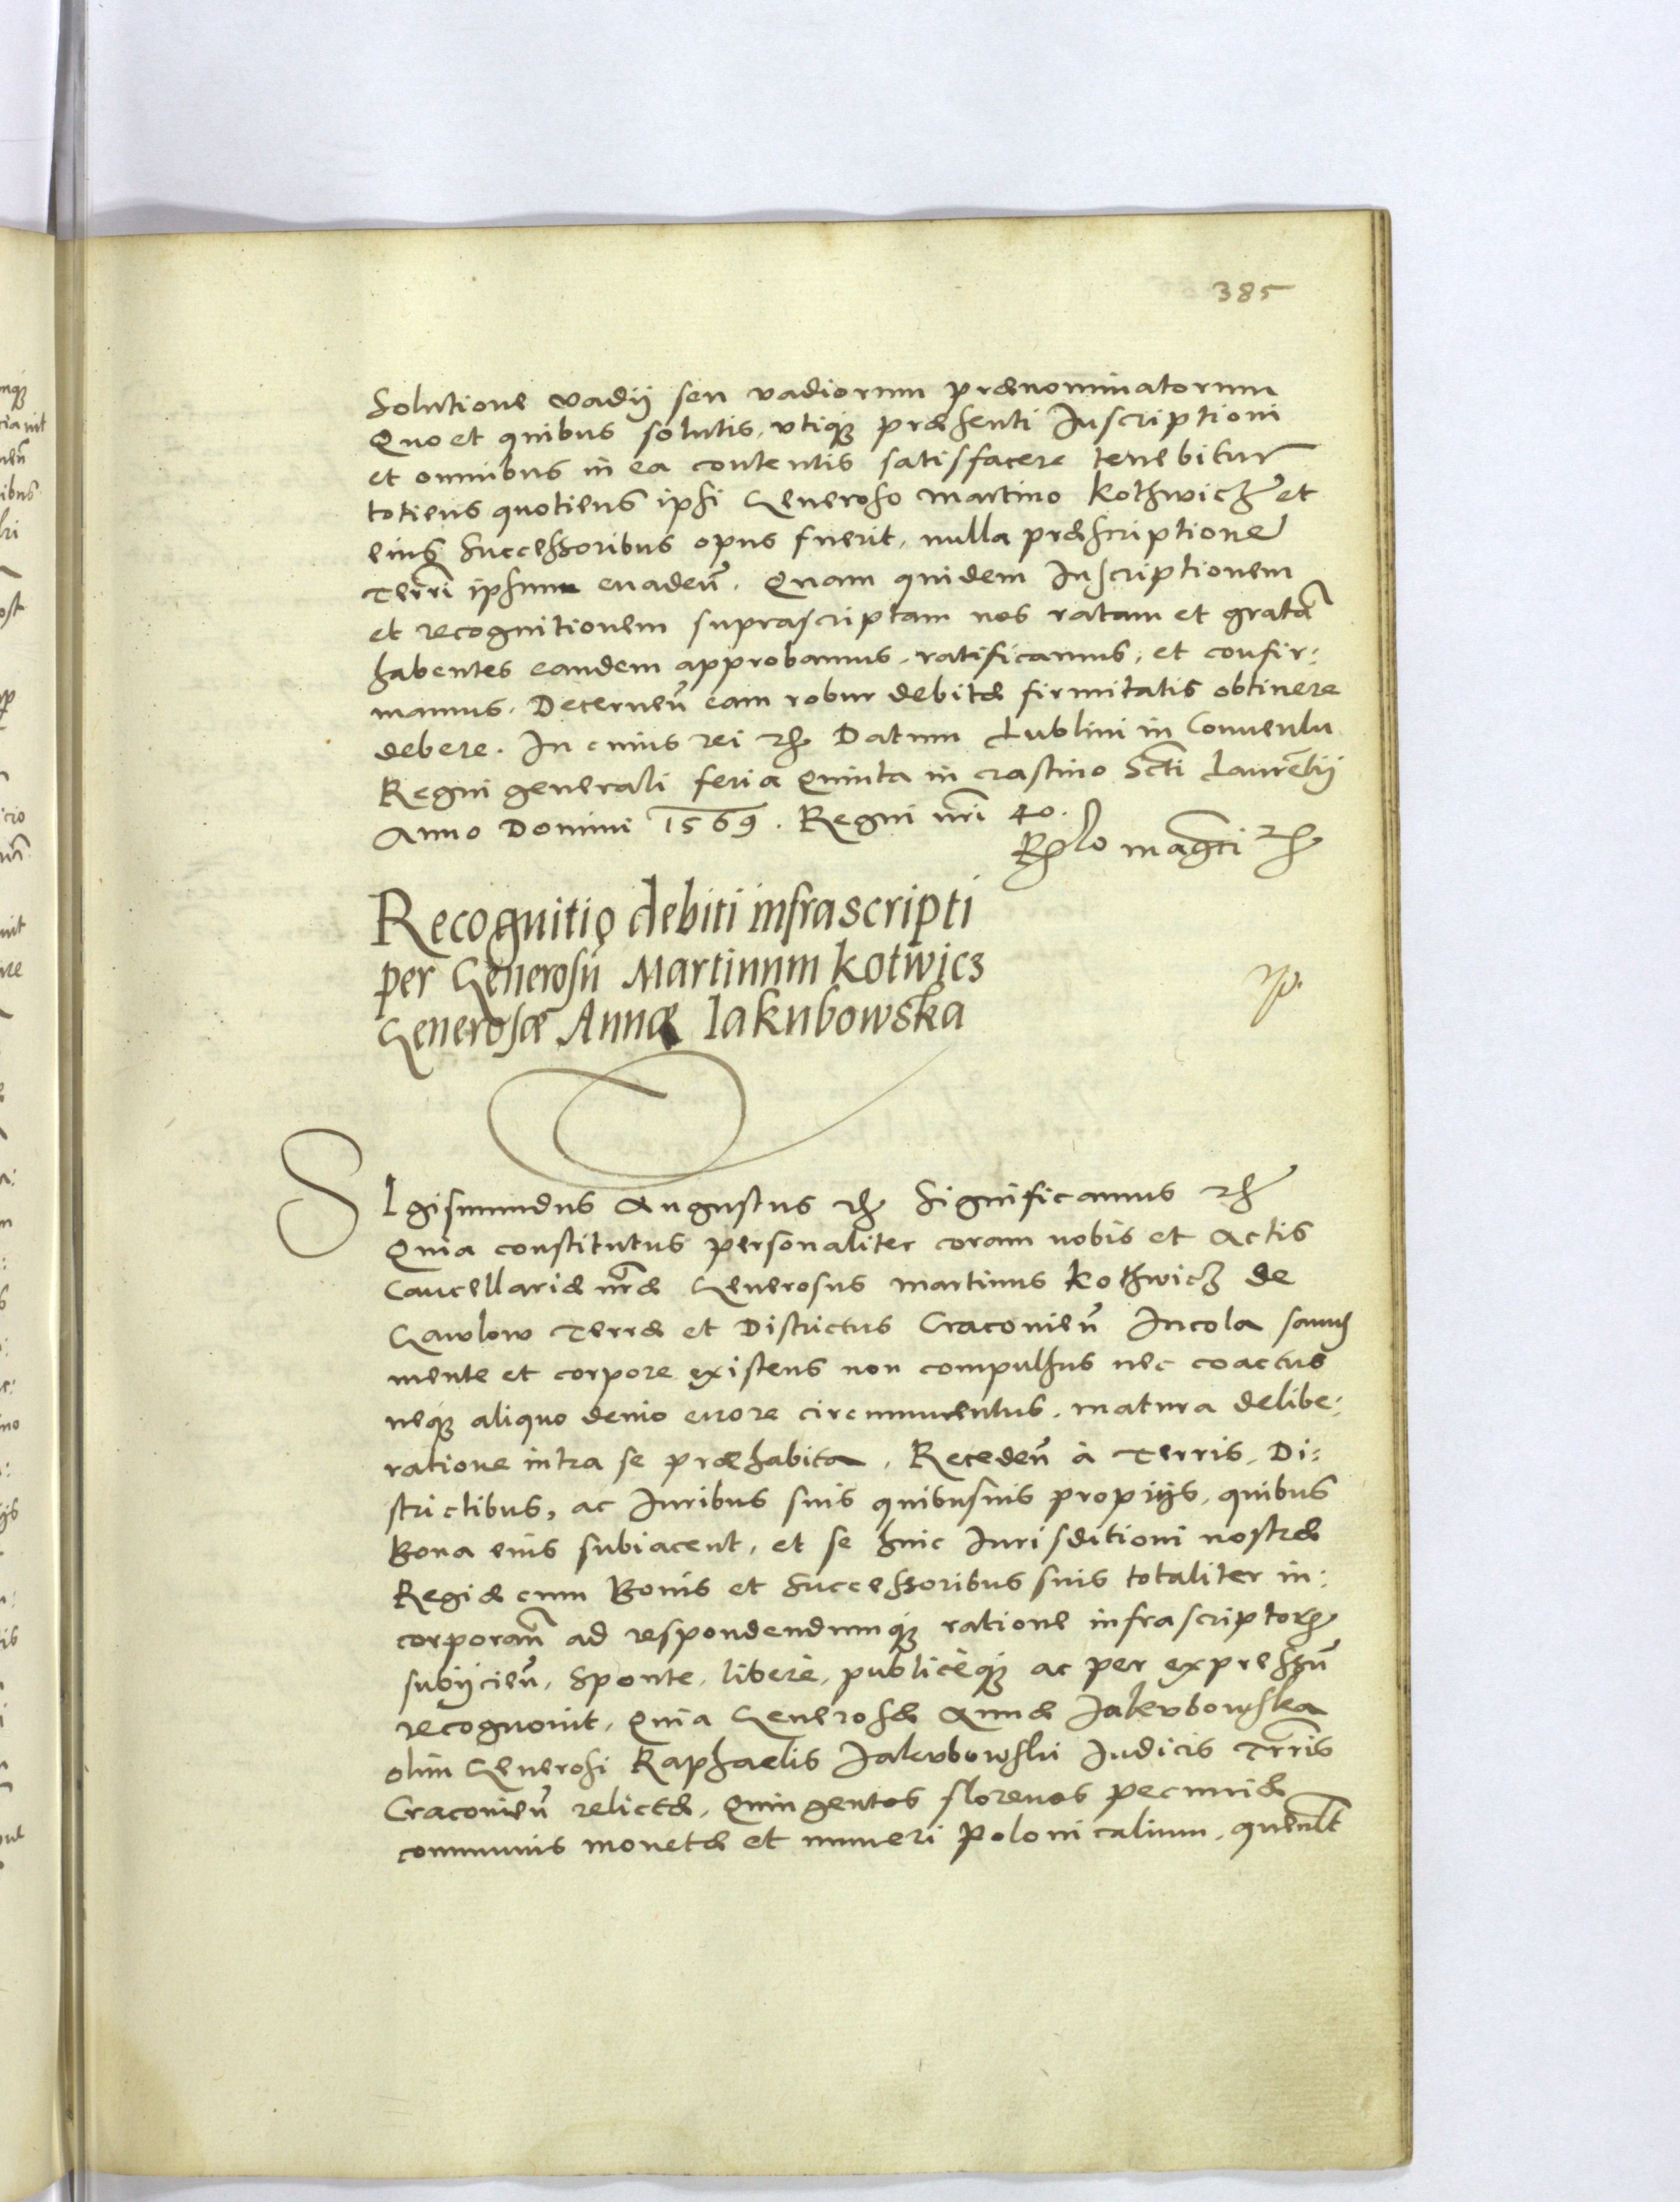 385
Solutione vadij seu vadiorum prænominatorum
Quo et quibus solutis, vtiq3 præsenti Inscriptioni
et omnibus in ea contentis satisfacere tenebitur
totiens quotiens ipsi Generoso Martino Kothwicz et
eius Successoribus opus fuerit, nulla præscriptione
Terri ipsum euadeñ. Quam quidem Inscriptionem
et recognitionem suprascriptam nos ratam et gratã
habentes eandem approbamus, ratificamus, et confir:
mamus. Decerneñ eam robur debitæ firmitatis obtinere
debere. In cuius rei etc Datum Lublini in Conuentu
Regni generali feria Quinta in crastino Scti Laurẽtij
Anno Domini 1569. Regni nri 40.
Rlo magci etc
Recognitio debiti infrascripti
per Generosũ Martinum Kotwicz
Generosæ Annæ Iakubowska
SIgismundus Augustus etc Significamus etc
Quia constitutus personaliter coram nobis et Actis
Cancellariæ nræ Generosus Martinus Kothwicz de
Gawlow Terræ et Districtus Cracovieñ Incola sanus
mente et corpore existens non compulsus nec coactus
neq3 aliquo deuio errore circumuentus, matura delibe:
ratione intra se præhabita, Recedeñ à Terris, Di:
strictibus, ac Iuribus suis quibusuis proprijs, quibus
Bona eius subiacent, et se huic Iurisditioni nostræ
Regiæ cum Bonis et Successoribus suis totaliter in:
corporañ ad respondendumq3 ratione infrascriptorum
subijcieñ, Sponte, liberè, publicèq3 ac per expressũ
recognouit, Quia Generosæ Annæ Jakubowska
olim Generosi Raphaelis Jakubowski Iudicis Trris
Cracovieñ relictæ, Quingentos florenos pecuniæ
communis monetæ et numeri Polonicalium, quemlt